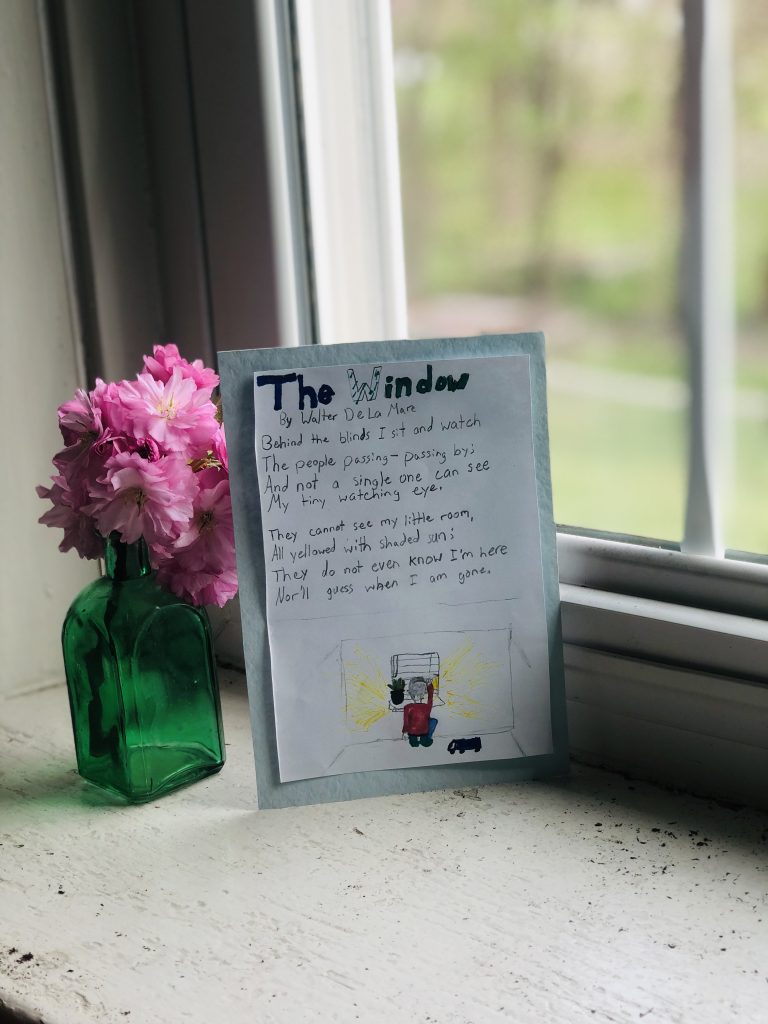 The Window
By Walter De La Mare
Behind the blinds I sit and watch
The people passing - passing by;
And not a single one can see
My tiny watching eye.
They cannot see my little room,
All yellowed with shaded sun;
They do not even know I'm here
Nor'll guess when I am gone.